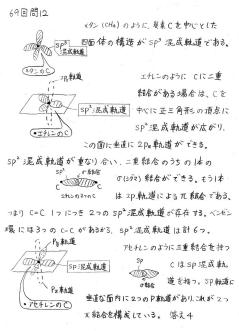 69回問12
メタン(CH4)のように、炭素Cを中心とした
四面体の構造がSP³混成軌道である。
SP³
混成軌道
メタンのC
2Pz軌道
エチレンのようにCに二重
結合がある場合は、Cを
中心に正三角形の頂点に
SP²混成軌道
SP²混成軌道が広がり、
●エチレンのC
この面に垂直に2Pz軌道ができる。
SP²混成軌道が重なり合い、二重結合のうちの1本の
σ結合
σ(シグマ)結合ができる。もう1本
は2Pz軌道によるπ結合である。
つまりC=C 1つにつき2つのSP²混成軌道が存在する。ベンゼン
環には3つのC=Cがあるから、SP²混成軌道は計6つ。
Pz軌道
アセチレンのように三重結合を持つ
SP
CはSP混成軌
σ結合
道を持つ。SP軌道に
SP混成軌道
Py軌道
垂直な面内に2つのP軌道があり、これが2つの
●アセチレンのC
π結合を構成している。 答え4